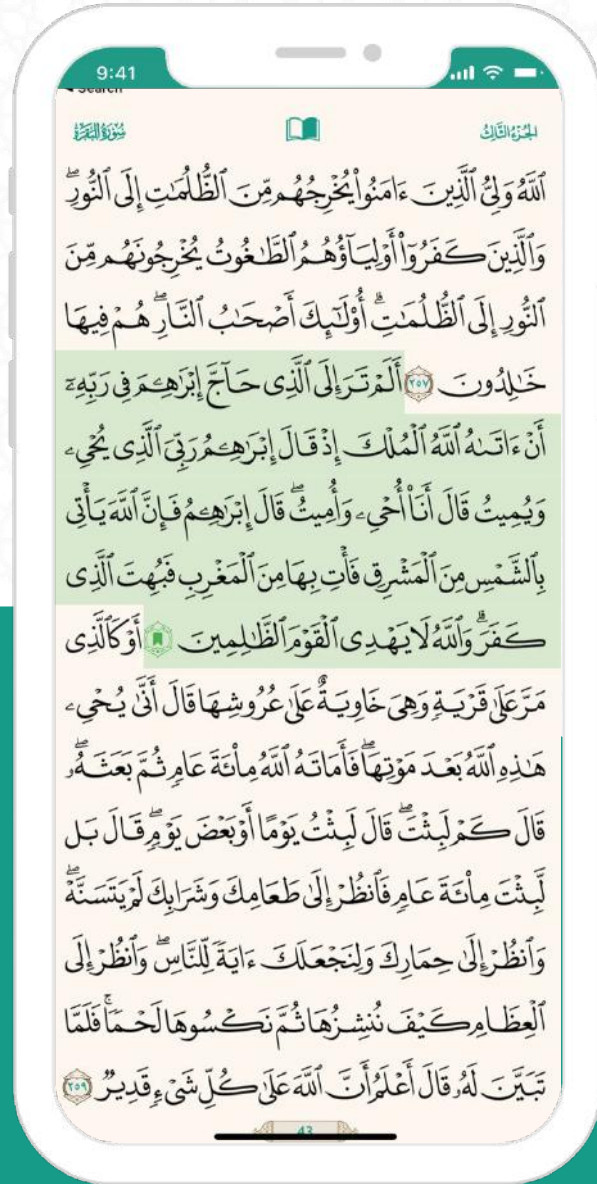 9:41
◀ Search
الجزء الثالث
سورة البقرة
ٱللَّهُ وَلِيُّ ٱلَّذِينَ ءَامَنُوا۟ يُخْرِجُهُم مِّنَ ٱلظُّلُمَٰتِ إِلَى ٱلنُّورِۖ
وَٱلَّذِينَ كَفَرُوٓا۟ أَوْلِيَآؤُهُمُ ٱلطَّٰغُوتُ يُخْرِجُونَهُم مِّنَ
ٱلنُّورِ إِلَى ٱلظُّلُمَٰتِۗ أُو۟لَٰٓئِكَ أَصْحَٰبُ ٱلنَّارِۖ هُمْ فِيهَا
خَٰلِدُونَ ٢٥٧ أَلَمْ تَرَ إِلَى ٱلَّذِى حَآجَّ إِبْرَٰهِۦمَ فِى رَبِّهِۦٓ
أَنْ ءَاتَىٰهُ ٱللَّهُ ٱلْمُلْكَ إِذْ قَالَ إِبْرَٰهِۦمُ رَبِّىَ ٱلَّذِى يُحْىِۦ
وَيُمِيتُ قَالَ أَنَا۠ أُحْىِۦ وَأُمِيتُۖ قَالَ إِبْرَٰهِۦمُ فَإِنَّ ٱللَّهَ يَأْتِى
بِٱلشَّمْسِ مِنَ ٱلْمَشْرِقِ فَأْتِ بِهَا مِنَ ٱلْمَغْرِبِ فَبُهِتَ ٱلَّذِى
كَفَرَۗ وَٱللَّهُ لَا يَهْدِى ٱلْقَوْمَ ٱلظَّٰلِمِينَ أَوْ كَٱلَّذِى
مَرَّ عَلَىٰ قَرْيَةٍ وَهِىَ خَاوِيَةٌ عَلَىٰ عُرُوشِهَا قَالَ أَنَّىٰ يُحْىِۦ
هَٰذِهِ ٱللَّهُ بَعْدَ مَوْتِهَاۖ فَأَمَاتَهُ ٱللَّهُ مِا۟ئَةَ عَامٍ ثُمَّ بَعَثَهُۥۖ
قَالَ كَمْ لَبِثْتَۖ قَالَ لَبِثْتُ يَوْمًا أَوْ بَعْضَ يَوْمٍۖ قَالَ بَل
لَّبِثْتَ مِا۟ئَةَ عَامٍ فَٱنظُرْ إِلَىٰ طَعَامِكَ وَشَرَابِكَ لَمْ يَتَسَنَّهْۖ
وَٱنظُرْ إِلَىٰ حِمَارِكَ وَلِنَجْعَلَكَ ءَايَةً لِّلنَّاسِۖ وَٱنظُرْ إِلَى
ٱلْعِظَامِ كَيْفَ نُنشِزُهَا ثُمَّ نَكْسُوهَا لَحْمًاۚ فَلَمَّا
تَبَيَّنَ لَهُۥ قَالَ أَعْلَمُ أَنَّ ٱللَّهَ عَلَىٰ كُلِّ شَىْءٍ قَدِيرٌ ٢٥٩
43